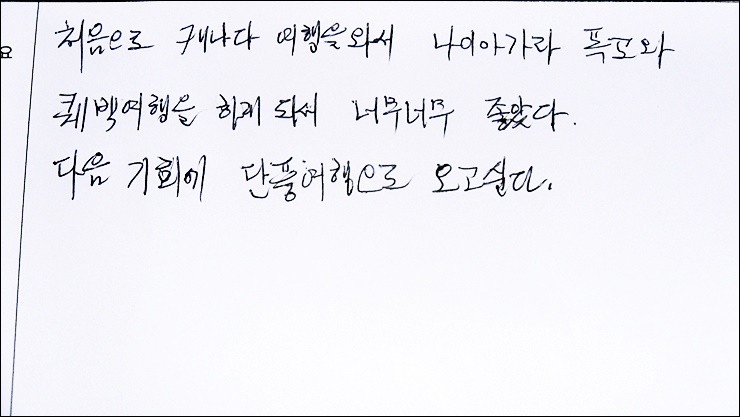 처음으로 캐나다 여행을와서 나이아가라 폭포와
퀘백여행을 하게 되서 너무너무 좋았다.
다음 기회에 단풍여행으로 오고싶다.
요